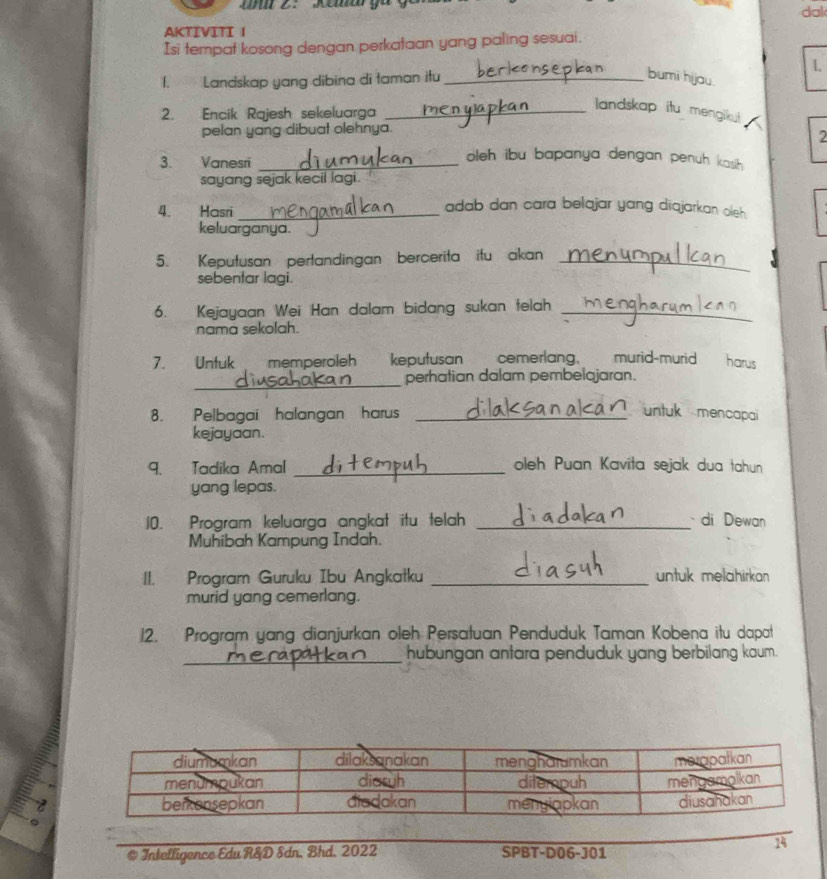 dal
AKTIVITI 1
Isi tempat kosong dengan perkataan yang paling sesuai.
1. Landskap yang dibina di taman itu berkonsepkan bumi hijau.
1.
2. Encik Rajesh sekeluarga menyiapkan landskap itu mengikut
pelan yang dibuat olehnya.
2
3. Vanesri diumukan oleh ibu bapanya dengan penuh kasih
sayang sejak kecil lagi.
4. Hasri mengamalkan adab dan cara belajar yang diajarkan oleh
keluarganya.
5. Keputusan pertandingan bercerita itu akan menumpulkan
sebentar lagi.
6. Kejayaan Wei Han dalam bidang sukan telah mengharumkan
nama sekolah.
7. Untuk memperoleh keputusan cemerlang, murid-murid harus
diusahakan perhatian dalam pembelajaran.
8. Pelbagai halangan harus dilaksanakan untuk mencapai
kejayaan.
9. Tadika Amal ditempuh oleh Puan Kavita sejak dua tahun
yang lepas.
10. Program keluarga angkat itu telah diadakan di Dewan
Muhibah Kampung Indah.
11. Program Guruku Ibu Angkatku diasuh untuk melahirkan
murid yang cemerlang.
12. Program yang dianjurkan oleh Persatuan Penduduk Taman Kobena itu dapat
merapatkan hubungan antara penduduk yang berbilang kaum.
diumumkan dilaksanakan mengharumkan merapatkan
menumpukan diasuh ditempuh mengamalkan
berkonsepkan diadakan menyiapkan diusahakan
© Intelligence Edu R&D Sdn. Bhd. 2022 SPBT-D06-J01 14